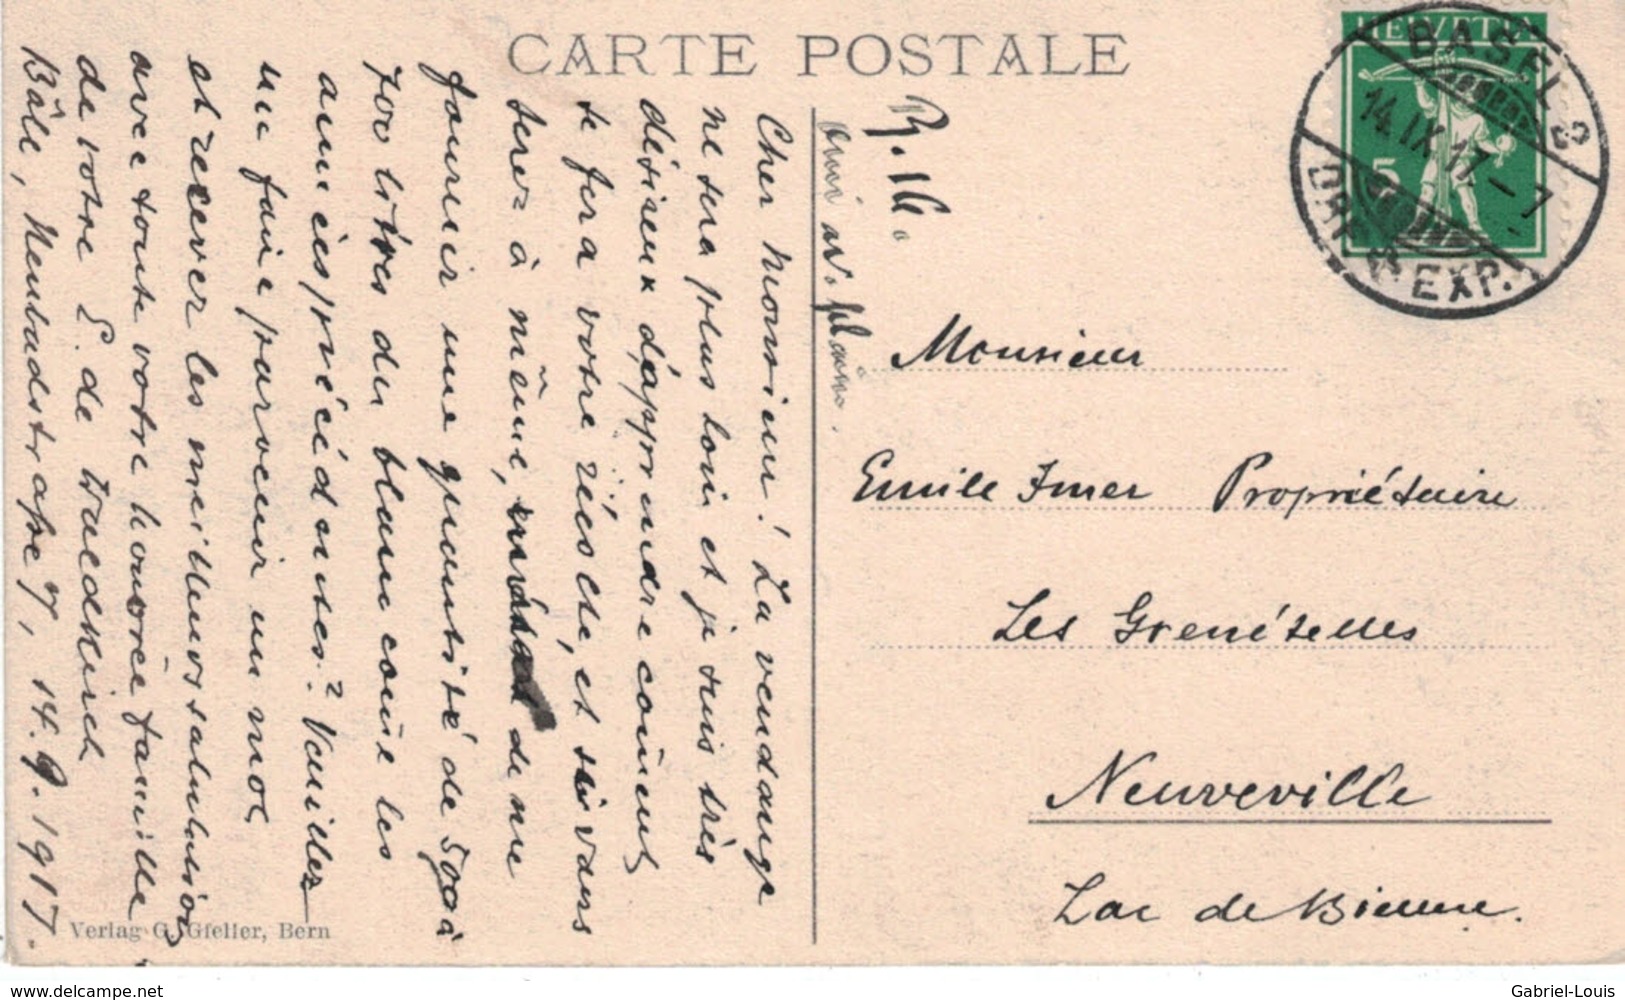 CARTE POSTALE
HELVETIA
5
BASEL 2
14.IX.17–7
BRIEF EXP.
Cher Monsieur! La vendange
ne sera plus loin et je suis très
désireux d'apprendre coment
te fera votre récolte, et si vous
serez à même, de me
fournir une quantité de 500 à
700 litres du blanc come les
années précédentes? Veuillez
me faire parvenir un mot
et recever les meilleurs salutations
avec toute votre honorée famille
de votre E. de
Bâle, 14.9.1917.
Monsieur
Emile Imer Propriétaire
Les Grenételles
Neuveville
Lac de Bienne.
Verlag G. Gfeller, Bern
delcampe.net
Gabriel-Louis